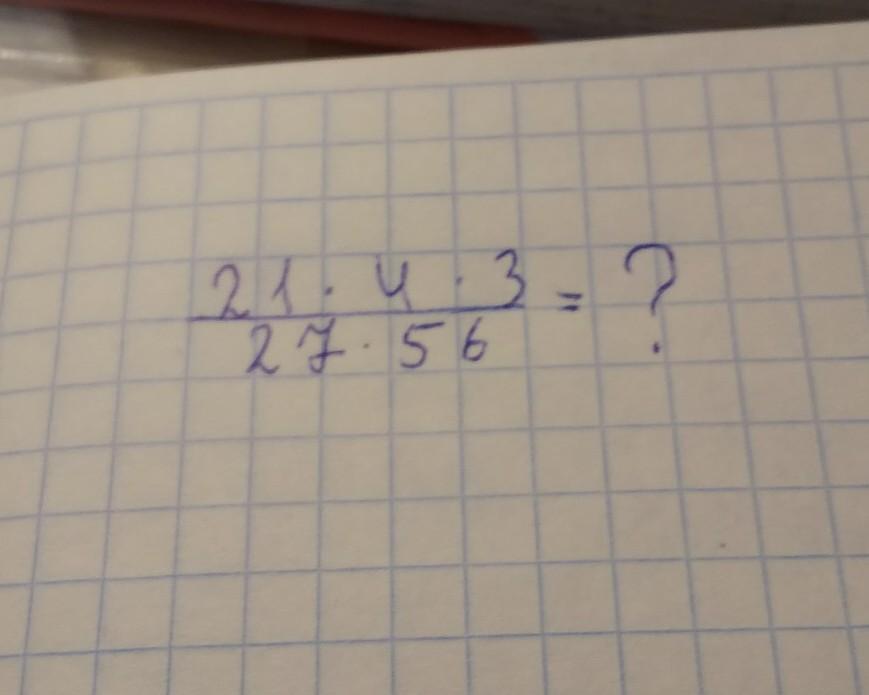 21 · 4 · 3 = ?
27 · 56